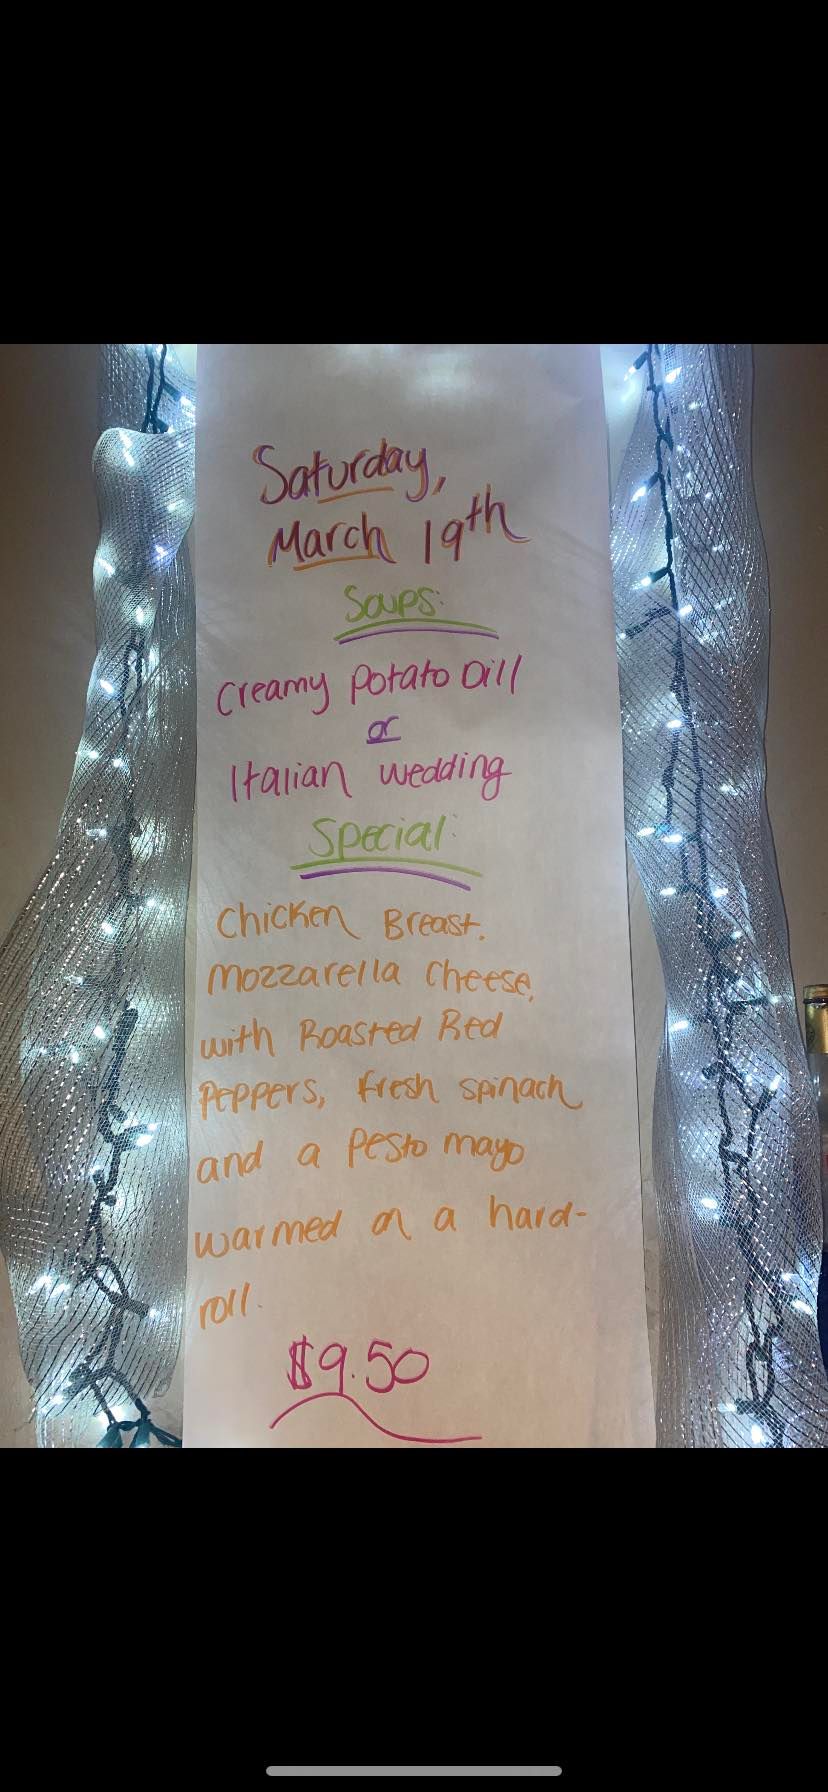 Saturday,
March 19th
Soups:
Creamy Potato Dill
or
Italian wedding
Special:
Chicken Breast,
Mozzarella Cheese,
with Roasted Red
Peppers, fresh spinach
and a Pesto mayo
warmed on a hard-
roll.
$9.50